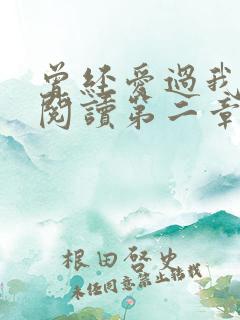 曾經愛過我
閱讀第二章
根田啓史
未經同意禁止轉載